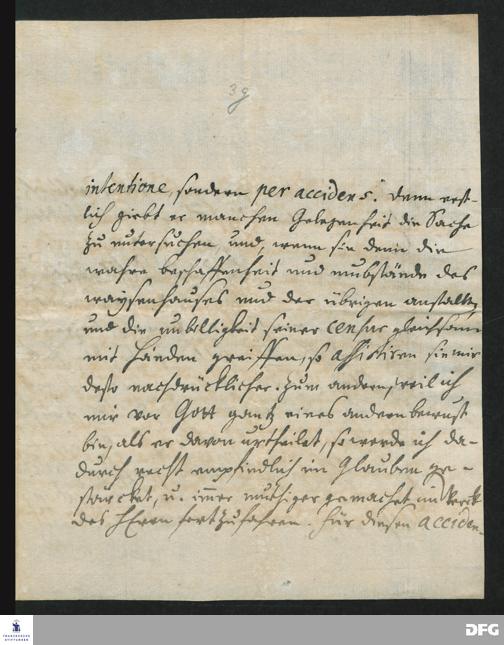 39
intentione, sondern per accidens. Denn erst-
lich giebt er manchen Gelegenheit die Sache
zu untersuchen, und wenn sie denn die
wahre beschaffenheit und umbstände des
waysenhauses und der übrigen anstalten,
und die unbilligkeit seiner censur gleichsam
mit Händen greiffen, so assistiren sie mir
desto nachdrücklicher. Zum andern, weil ich
mir vor Gott gantz eines andern bewust
bin, als er davon urtheilet, so werde ich da-
durch recht empfindlich im Glauben ge-
stärcket, u. immer muthiger gemachet im Werck
des HErrn fortzufahren. Für diesen acciden-
FRANCKESCHE
STIFTUNGEN
DFG